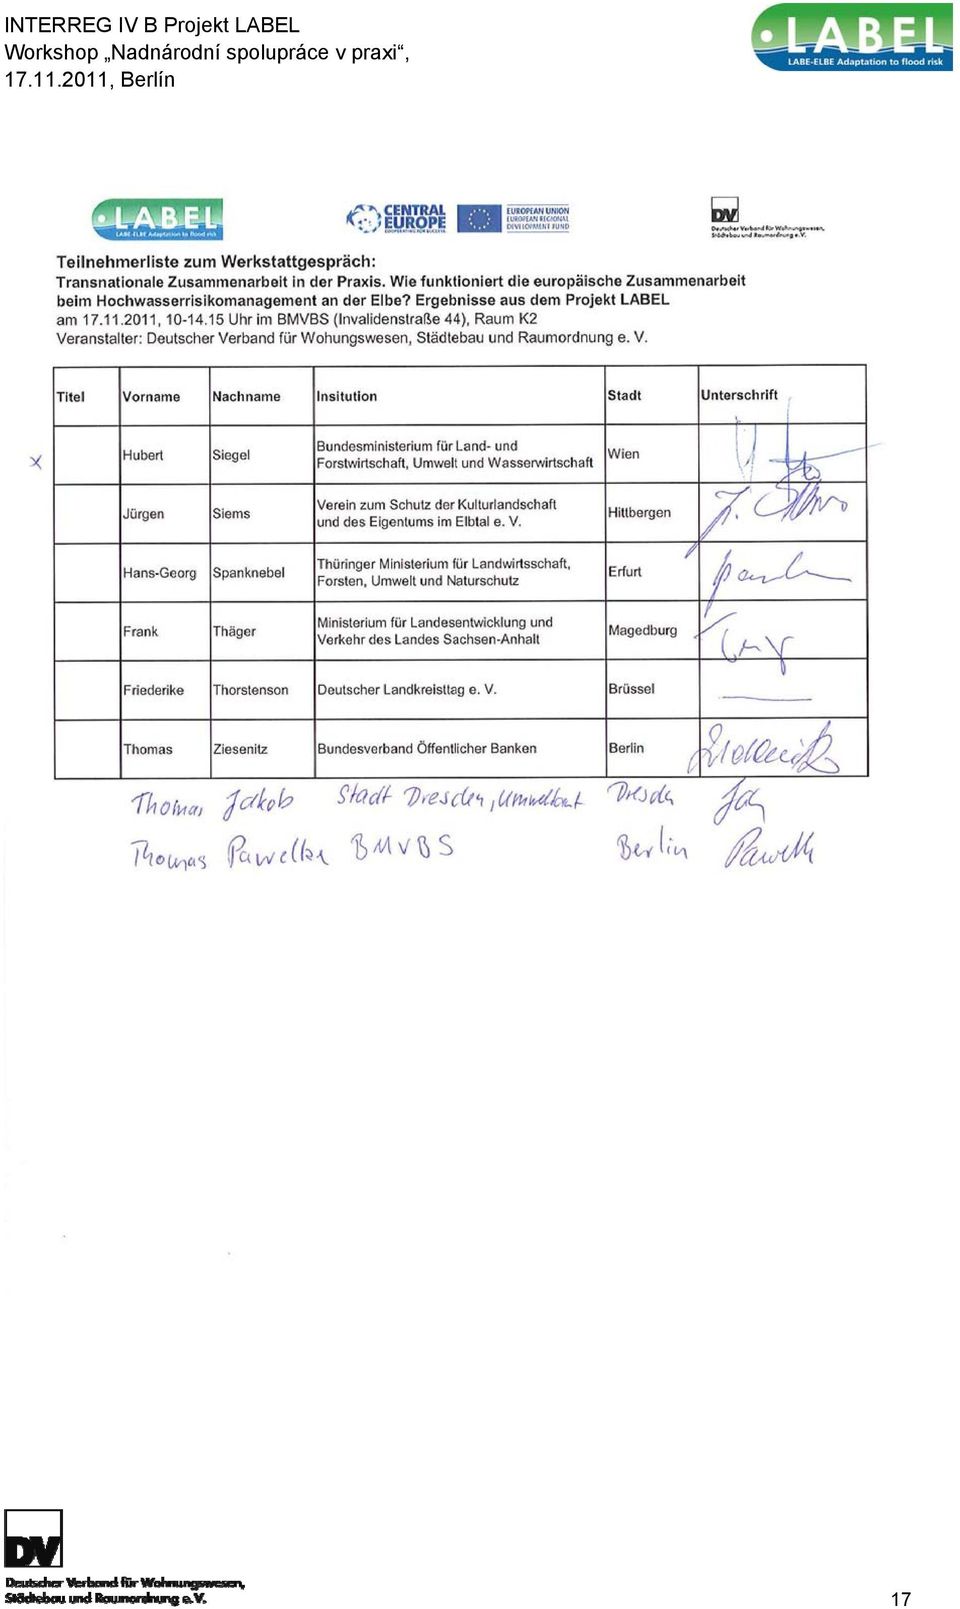 INTERREG IV B Projekt LABEL
Workshop „Nadnárodní spolupráce v praxi“,
17.11.2011, Berlín
LABEL
LABE-ELBE Adaptation to flood risk
LABEL
LABE-ELBE Adaptation to flood risk
CENTRAL
EUROPE
COOPERATING FOR SUCCESS.
EUROPEAN UNION
EUROPEAN REGIONAL
DEVELOPMENT FUND
DV
Deutscher Verband für Wohnungswesen,
Städtebau und Raumordnung e.V.
Teilnehmerliste zum Werkstattgespräch:
Transnationale Zusammenarbeit in der Praxis. Wie funktioniert die europäische Zusammenarbeit
beim Hochwasserrisikomanagement an der Elbe? Ergebnisse aus dem Projekt LABEL
am 17.11.2011, 10-14.15 Uhr im BMVBS (Invalidenstraße 44), Raum K2
Veranstalter: Deutscher Verband für Wohungswesen, Städtebau und Raumordnung e. V.
Titel Vorname Nachname Insitution Stadt Unterschrift
x Hubert Siegel Bundesministerium für Land- und
Forstwirtschaft, Umwelt und Wasserwirtschaft Wien
Jürgen Siems Verein zum Schutz der Kulturlandschaft
und des Eigentums im Elbtal e. V. Hittbergen
Hans-Georg Spanknebel Thüringer Ministerium für Landwirtsschaft,
Forsten, Umwelt und Naturschutz Erfurt
Frank Thäger Ministerium für Landesentwicklung und
Verkehr des Landes Sachsen-Anhalt Magedburg
Friederike Thorstenson Deutscher Landkreisttag e. V. Brüssel
Thomas Ziesenitz Bundesverband Öffentlicher Banken Berlin
Thomas Jakob Stadt Dresden, Umweltamt Dresden
Thomas Pawelka BMVBS Berlin
DV
Deutscher Verband für Wohnungswesen,
Städtebau und Raumordnung e.V.
17